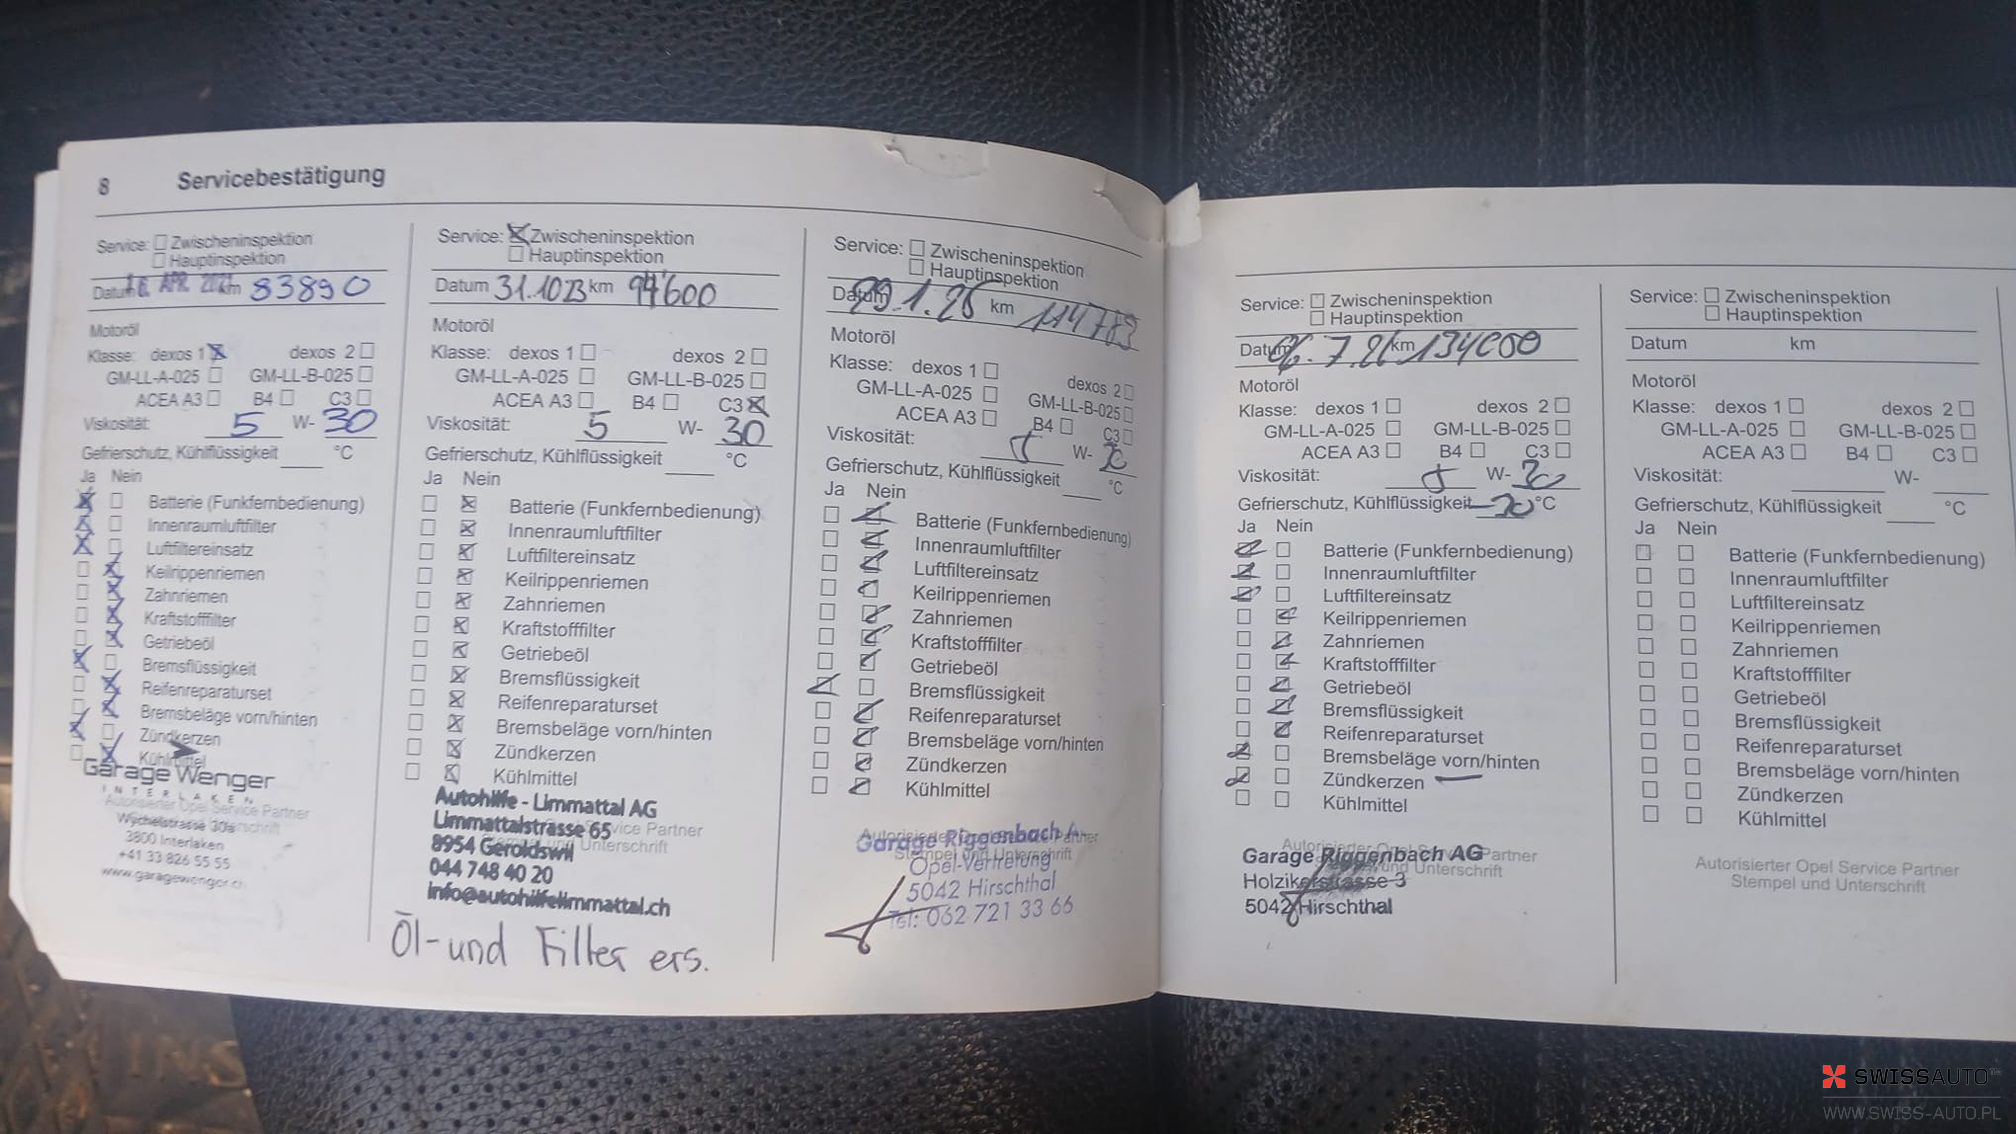 8 Servicebestätigung
Service: Zwischeninspektion
Hauptinspektion
Datum APR. km 83890
Motoröl
Klasse: dexos 1 dexos 2
GM-LL-A-025 GM-LL-B-025
ACEA A3 B4 C3
Viskosität: 5 W- 30
Gefrierschutz, Kühlflüssigkeit °C
Ja Nein
Batterie (Funkfernbedienung)
Innenraumluftfilter
Luftfiltereinsatz
Keilrippenriemen
Zahnriemen
Kraftstofffilter
Getriebeöl
Bremsflüssigkeit
Reifenreparaturset
Bremsbeläge vorn/hinten
Zündkerzen
Kühlmittel
Garage Wenger
INTERLAKEN
Autorisierter Opel Service Partner
Wychelstrasse 30a
3800 Interlaken
+41 33 826 55 55
www.garagewenger.ch
Service: Zwischeninspektion
Hauptinspektion
Datum 31.10 23 km 94'600
Motoröl
Klasse: dexos 1 dexos 2
GM-LL-A-025 GM-LL-B-025
ACEA A3 B4 C3
Viskosität: 5 W- 30
Gefrierschutz, Kühlflüssigkeit °C
Ja Nein
Batterie (Funkfernbedienung)
Innenraumluftfilter
Luftfiltereinsatz
Keilrippenriemen
Zahnriemen
Kraftstofffilter
Getriebeöl
Bremsflüssigkeit
Reifenreparaturset
Bremsbeläge vorn/hinten
Zündkerzen
Kühlmittel
Autohilfe - Limmattal AG
Limmattalstrasse 65
Service Partner
8954 Geroldswil
Unterschrift
044 748 40 20
info@autohilfelimmattal.ch
Öl- und Filter ers.
Service: Zwischeninspektion
Hauptinspektion
Datum 29.1.25 km 114783
Motoröl
Klasse: dexos 1 dexos 2
GM-LL-A-025 GM-LL-B-025
ACEA A3 B4 C3
Viskosität: 5 W-
Gefrierschutz, Kühlflüssigkeit °C
Ja Nein
Batterie (Funkfernbedienung)
Innenraumluftfilter
Luftfiltereinsatz
Keilrippenriemen
Zahnriemen
Kraftstofffilter
Getriebeöl
Bremsflüssigkeit
Reifenreparaturset
Bremsbeläge vorn/hinten
Zündkerzen
Kühlmittel
Autorisierter Opel Service Partner
Garage Riggenbach
Stempel und Unterschrift
Opel-Vertretung
5042 Hirschthal
Tel: 062 721 33 66
Service: Zwischeninspektion
Hauptinspektion
Datum 7. km 134000
Motoröl
Klasse: dexos 1 dexos 2
GM-LL-A-025 GM-LL-B-025
ACEA A3 B4 C3
Viskosität: 5 W- 30
Gefrierschutz, Kühlflüssigkeit °C
Ja Nein
Batterie (Funkfernbedienung)
Innenraumluftfilter
Luftfiltereinsatz
Keilrippenriemen
Zahnriemen
Kraftstofffilter
Getriebeöl
Bremsflüssigkeit
Reifenreparaturset
Bremsbeläge vorn/hinten
Zündkerzen
Kühlmittel
Autorisierter Opel Service Partner
Garage Riggenbach AG
Stempel und Unterschrift
Holzikerstrasse 3
5042 Hirschthal
Service: Zwischeninspektion
Hauptinspektion
Datum km
Motoröl
Klasse: dexos 1 dexos 2
GM-LL-A-025 GM-LL-B-025
ACEA A3 B4 C3
Viskosität: W-
Gefrierschutz, Kühlflüssigkeit °C
Ja Nein
Batterie (Funkfernbedienung)
Innenraumluftfilter
Luftfiltereinsatz
Keilrippenriemen
Zahnriemen
Kraftstofffilter
Getriebeöl
Bremsflüssigkeit
Reifenreparaturset
Bremsbeläge vorn/hinten
Zündkerzen
Kühlmittel
Autorisierter Opel Service Partner
Stempel und Unterschrift
SWISSAUTO™
WWW.SWISS-AUTO.PL